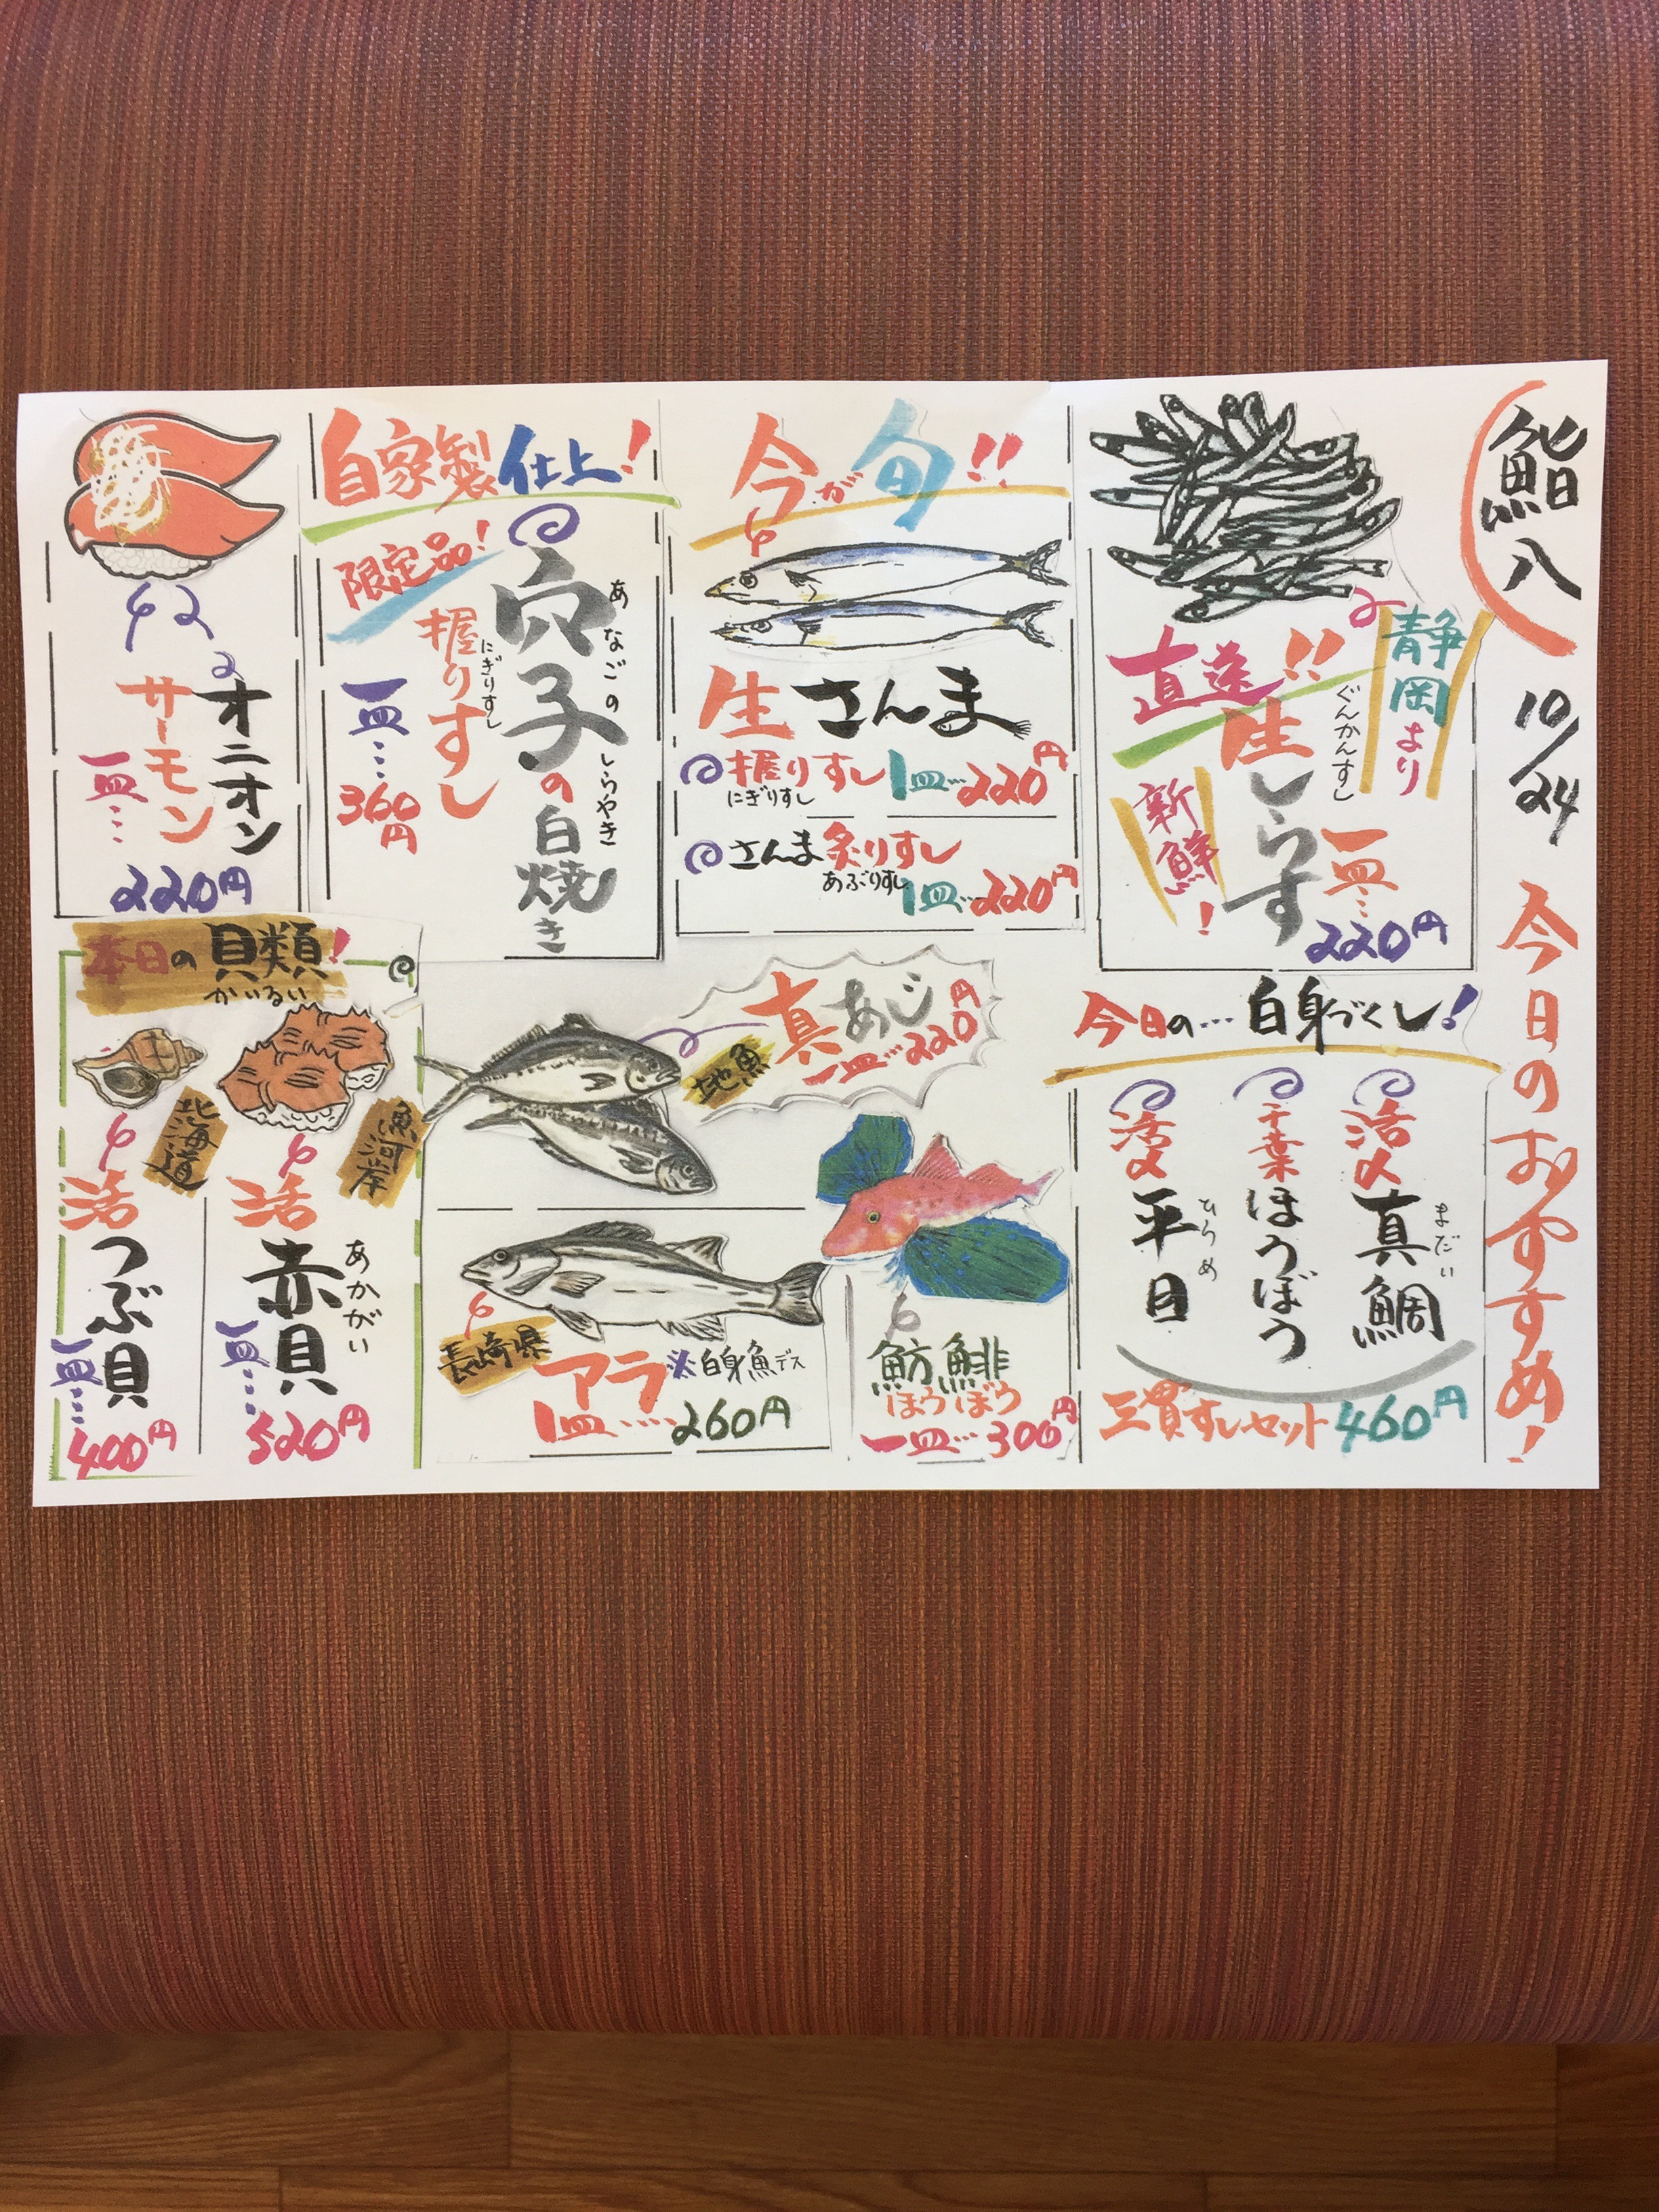 鮨八
10/24
今日のおすすめ!
静岡より
直送!!
生しらす
ぐんかんすし
新鮮!
一皿…
220円
今が旬!!
生さんま
握りすし 1皿…220円
にぎりすし
さんま炙りすし
あぶりすし
1皿…220円
自家製仕上!
限定品!
穴子の白焼き
あなごのしらやき
握りすし
にぎりすし
一皿…
360円
オニオン
サーモン
一皿…
220円
今日の…白身づくし!
活〆
真鯛
まだい
千葉
ほうぼう
活〆
平目
ひらめ
三貫すしセット 460円
真あじ
一皿…220円
地魚
魴鮄
ほうぼう
一皿…300円
長崎県
アラ
※白身魚デス
1皿……260円
本日の貝類!
かいるい
魚河岸
活赤貝
あかがい
一皿……
520円
北海道
活つぶ貝
一皿……
400円